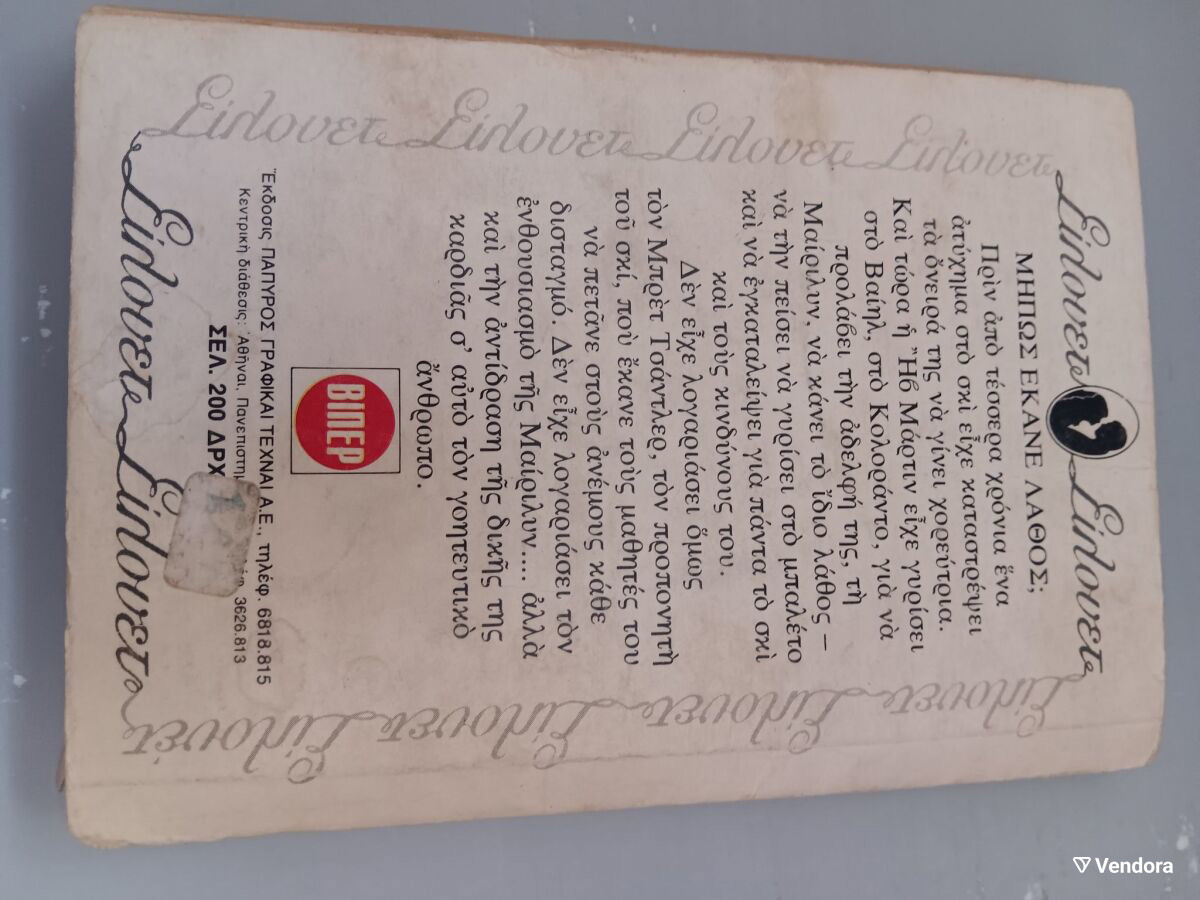 Σίλουετ Σίλουετ
Σίλουετ Σίλουετ Σίλουετ Σίλουετ
ΜΗΠΩΣ ΕΚΑΝΕ ΛΑΘΟΣ;
Πρὶν ἀπὸ τέσσερα χρόνια ἕνα
ἀτύχημα στὸ σκὶ εἶχε καταστρέψει
τὰ ὄνειρά της νὰ γίνει χορεύτρια.
Καὶ τώρα ἡ Ἤβ Μάρτιν εἶχε γυρίσει
στὸ Βαίηλ, στὸ Κολοράντο, γιὰ νὰ
προλάβει τὴν ἀδελφή της, τὴ
Μαίριλυν, νὰ κάνει τὸ ἴδιο λάθος –
νὰ τὴν πείσει νὰ γυρίσει στὸ μπαλέτο
καὶ νὰ ἐγκαταλείψει γιὰ πάντα τὸ σκὶ
καὶ τοὺς κινδύνους του.
Δὲν εἶχε λογαριάσει ὅμως
τὸν Μπρὲτ Τσάντλερ, τὸν προπονητὴ
τοῦ σκί, ποὺ ἔκανε τοὺς μαθητές του
νὰ πετᾶνε στοὺς ἀνέμους κάθε
δισταγμό. Δὲν εἶχε λογαριάσει τὸν
ἐνθουσιασμὸ τῆς Μαίριλυν.... ἀλλὰ
καὶ τὴν ἀντίδραση τῆς δικῆς της
καρδιᾶς σ' αὐτὸ τὸν γοητευτικὸ
ἄνθρωπο.
ΒΙΠΕΡ
Ἔκδοσις ΠΑΠΥΡΟΣ ΓΡΑΦΙΚΑΙ ΤΕΧΝΑΙ Α.Ε., τηλέφ. 6818.815
Κεντρικὴ διάθεσις: Ἀθῆναι, Πανεπιστη 3626.813
ΣΕΛ. 200 ΔΡΧ
Σίλουετ Σίλουετ Σίλουετ
Σίλουετ Σίλουετ Σίλουετ Σίλουετ
Vendora